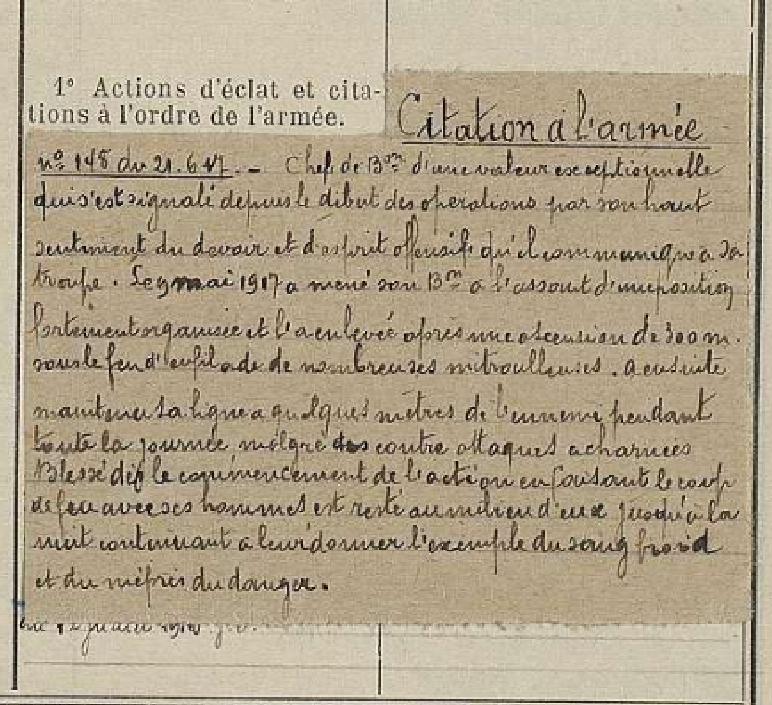 1° Actions d'éclat et cita-
tions à l'ordre de l'armée.
Citation à l'armée
n° 148 du 21.6.17. - Chef de Bon d'une valeur exceptionnelle
qui s'est signalé depuis le début des opérations par son haut
sentiment du devoir et d'esprit offensif qu'il communique à sa
troupe. Le 9 mai 1917 a mené son Bon à l'assaut d'une position
fortement organisée et l'a enlevée après une ascension de 300 m.
sous le feu d'enfilade de nombreuses mitrailleuses. a ensuite
maintenu sa ligne a quelques mètres de l'ennemi pendant
toute la journée malgré des contre attaques acharnées
Blessé dès le commencement de l'action en faisant le coup
de feu avec ses hommes est resté au milieu d'eux jusqu'à la
nuit continuant à leur donner l'exemple du sang froid
et du mépris du danger.